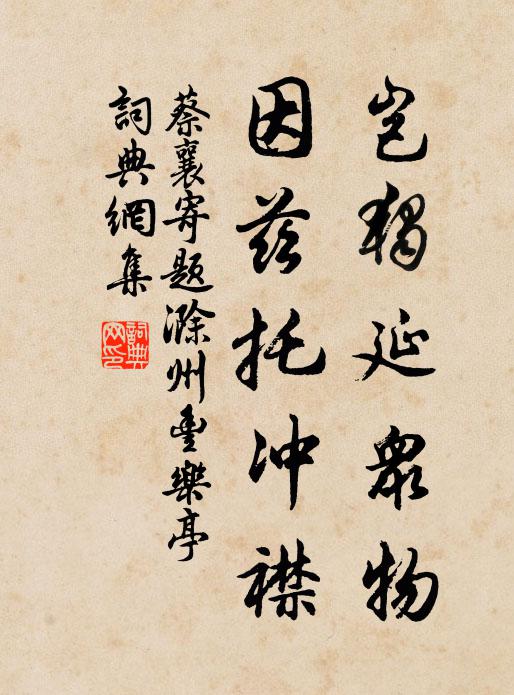 岂獨延衆物
因茲托冲襟
蔡襄寄题滁州豐樂亭
詞典網集
詞典網印